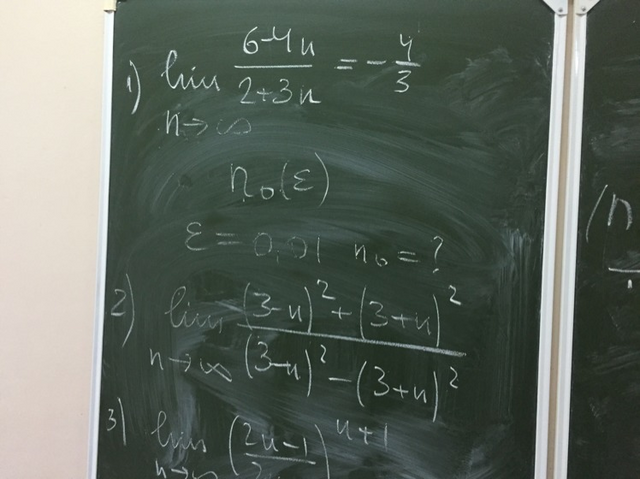 1) lim 6-4n / 2+3n = - 4/3
n→∞
n₀(ε)
ε = 0,01 n₀ = ?
2) lim (3-n)² + (3+n)² / (3-n)² - (3+n)²
n→∞
3) lim (2n-1 / )ⁿ⁺¹
n→∞
(n